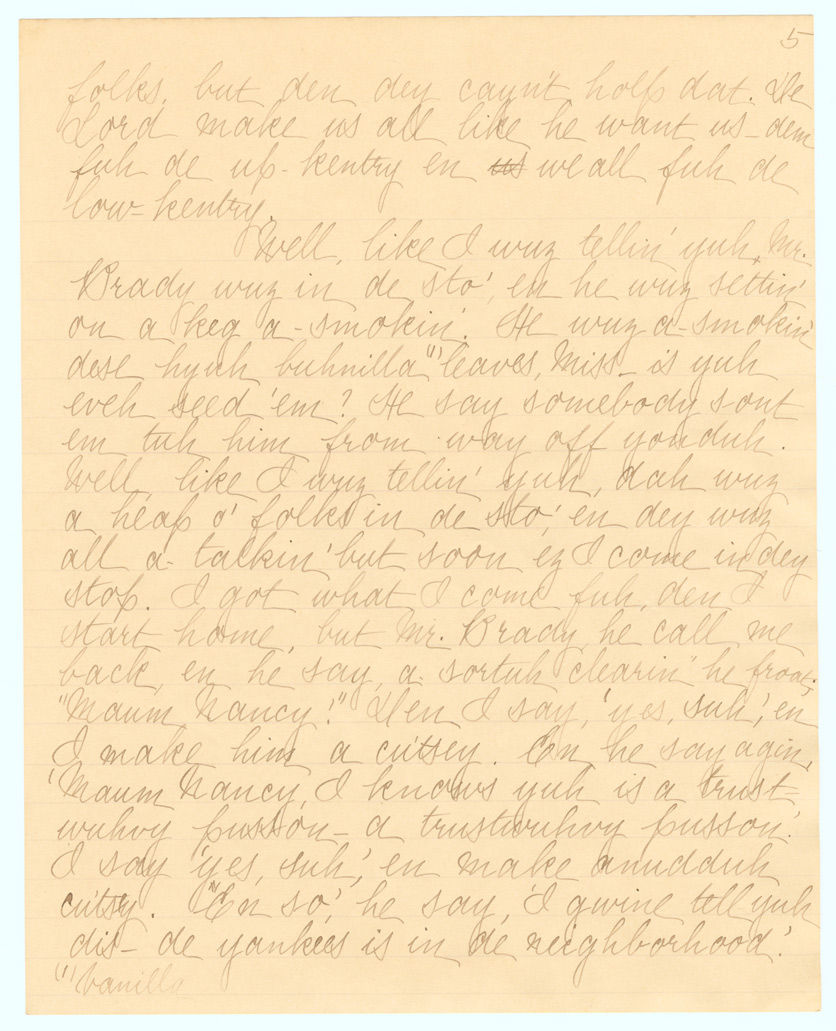 5
folks, but den dey cayn't holp dat. De
Lord make us all like he want us - dem
fuh de up-kentry en us we all fuh de
low=kentry.
"Well, like I wuz tellin' yuh, Mr.
Brady wuz in de sto', en he wuz settin'
on a keg a-smokin'. He wuz a-smokin'
dese hyuh buhnilla"(1) leaves, Miss - is yuh
eveh seed 'em? He say somebody sont
em tuh him from way off yonduh.
Well, like I wuz tellin' yuh, dah wuz
a heap o' folks in de sto', en dey wuz
all a-talkin' but soon ez I come in dey
stop. I got what I come fuh, den I
start home, but Mr. Brady, he call me
back, en he say, a-sortuh clearin' he froat,
"Maum Nancy!" Den I say, 'yes, suh', en
I make him a cu'tsey. En he say agin,
'Maum Nancy, I knows yuh is a trust=
wuhvy pusson - a trustwuhvy pusson'.
I say 'yes, suh', en make anudduh
cu'tsy. "En so', he say, 'I gwine tell yuh
dis - de yankees is in de neighborhood.'
"(1) Vanilla